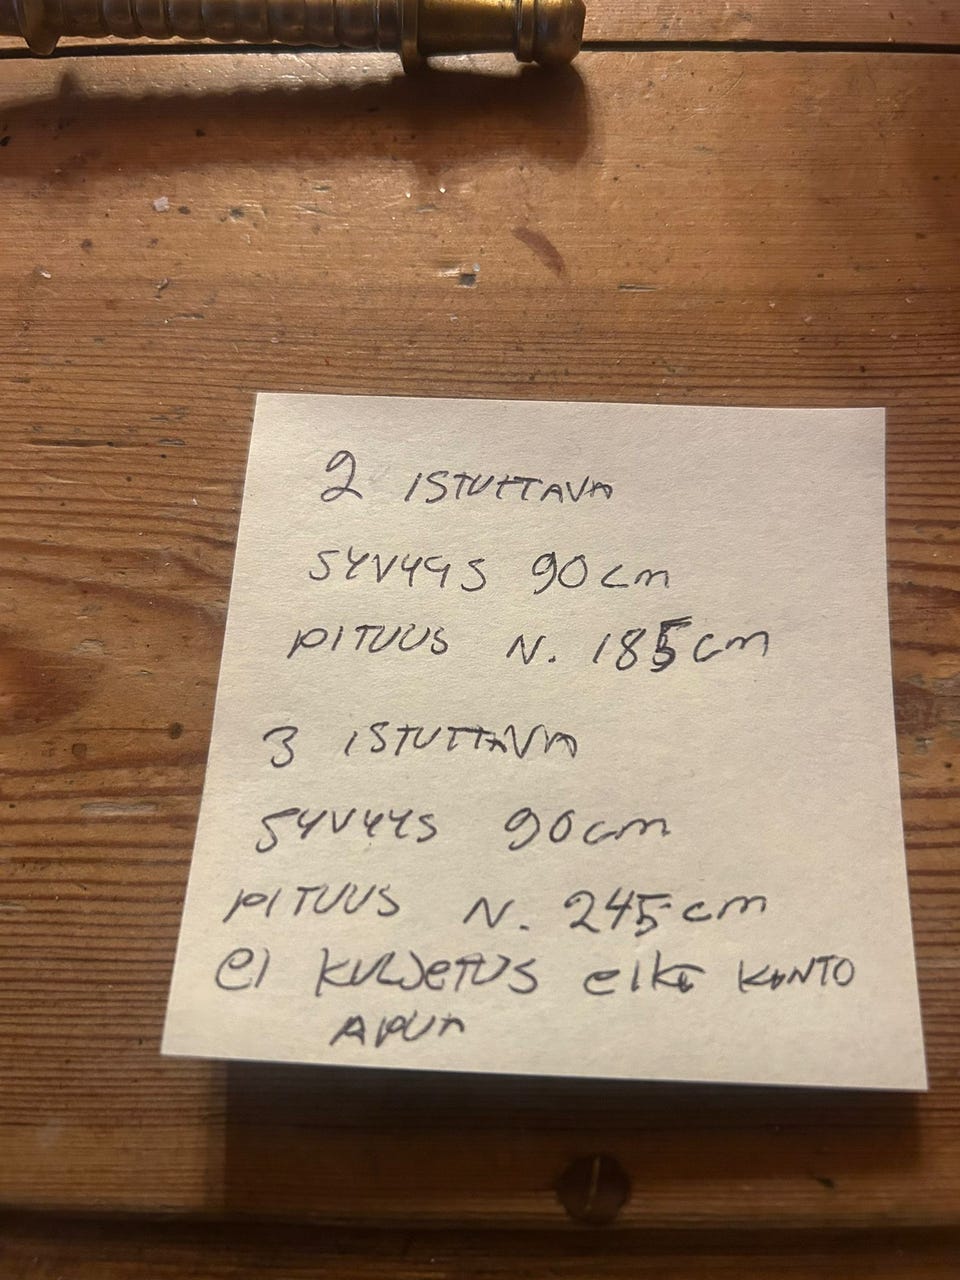 2 ISTUTTAVA
SYVYYS 90cm
PITUUS N. 185cm
3 ISTUTTAVA
SYVYYS 90cm
PITUUS N. 245cm
EI KULJETUS EIKE KANTO
APUA